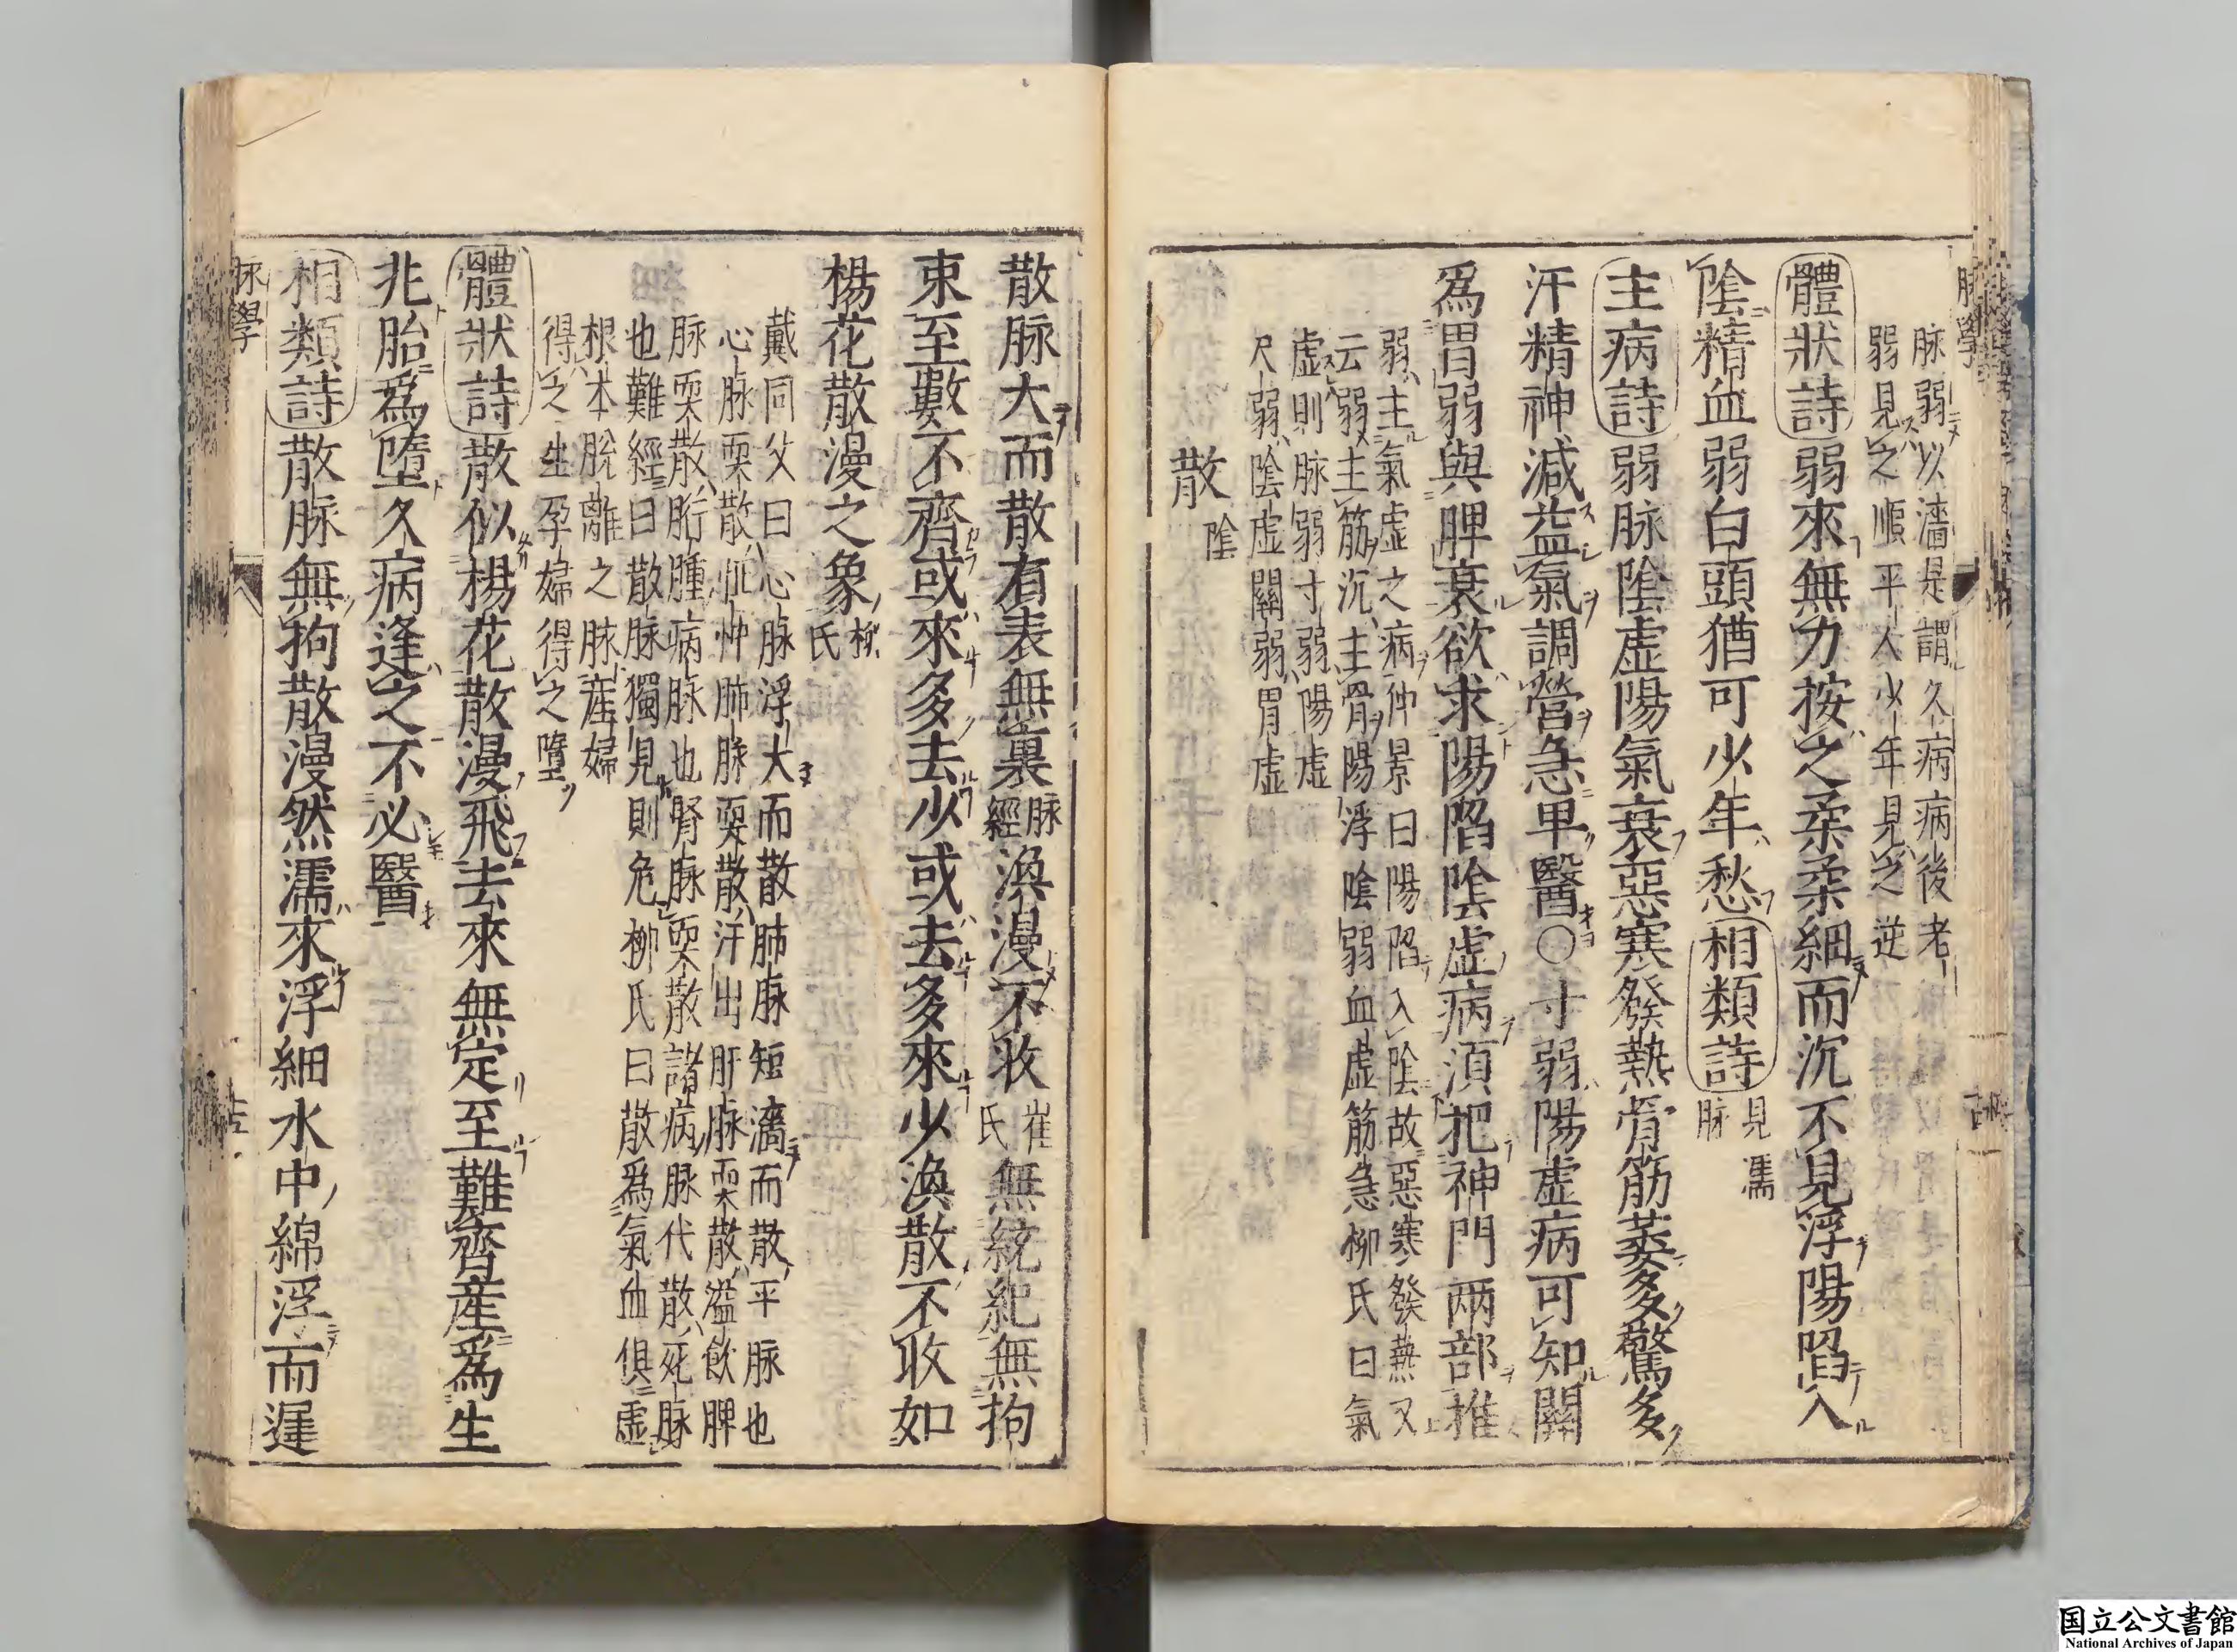 脉學
脉弱以濇是謂久病病後老
弱見之順平人少年見之逆
體狀詩弱來無力按之柔柔細而沉不見浮陽陷入
陰精血弱白頭猶可少年愁相類詩見濡脉
主病詩弱脉陰虛陽氣衰惡寒發熱骨筋萎多驚多
汗精神減益氣調營急早醫○寸弱陽虛病可知關
爲胃弱與脾衰欲求陽陷陰虛病須把神門兩部推
弱主氣虛之病仲景曰陽陷入陰故惡寒發熱又
云弱主筋沉主骨陽浮陰弱血虛筋急柳氏曰氣
虛則脉弱寸弱陽虛
尺弱陰虛關弱胃虛
散陰
散脉大而散有表無裏脉經渙漫不收崔氏無統紀無拘
束至數不齊或來多去少或去多來少渙散不收如
楊花散漫之象柳氏
戴同父曰心脉浮大而散肺脉短濇而散平脉也
心脉耎散怔忡肺脉耎散汗出肝脉耎散溢飲脾
脉耎散胻腫病脉也腎脉耎散諸病脉代散死脉
也難經曰散脉獨見則危柳氏曰散爲氣血俱虛
根本脫離之脉產婦
得之生孕婦得之墮
體狀詩散似楊花散漫飛去來無定至難齊產爲生
兆胎爲墮久病逢之不必醫
相類詩散脉無拘散漫然濡來浮細水中綿浮而遲
脉學
十五
国立公文書館
National Archives of Japan